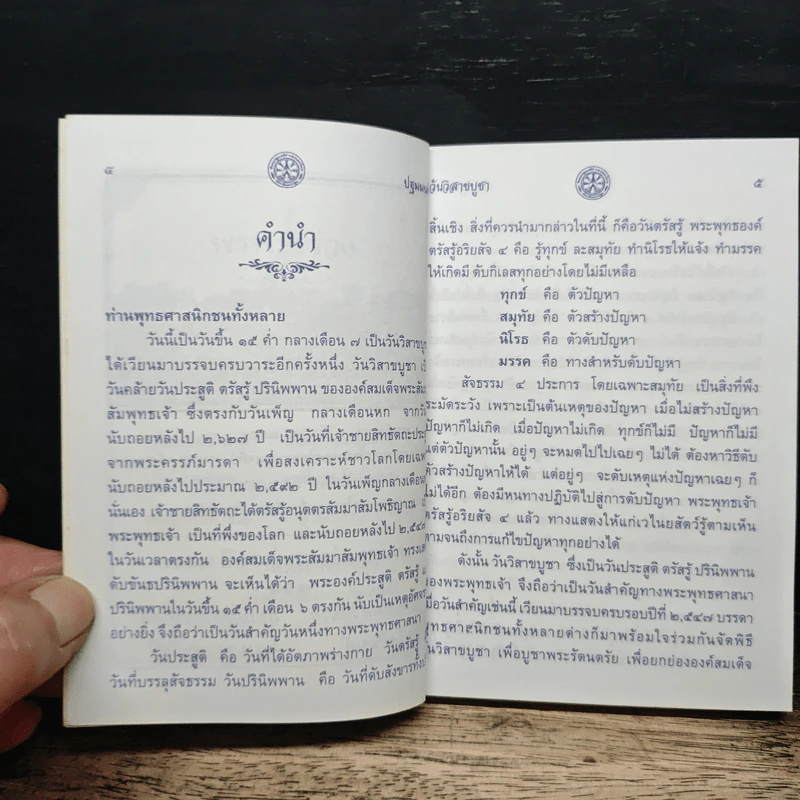 ๔
คำนำ
ท่านพุทธศาสนิกชนทั้งหลาย
วันนี้เป็นวันขึ้น ๑๕ ค่ำ กลางเดือน ๗ เป็นวันวิสาขบูช
ได้เวียนมาบรรจบครบวาระอีกครั้งหนึ่ง วันวิสาขบูชา
วันคล้ายวันประสูติ ตรัสรู้ ปรินิพพาน ขององค์สมเด็จพระสัม
สัมพุทธเจ้า ซึ่งตรงกับวันเพ็ญ กลางเดือนหก จาก
นับถอยหลังไป ๒,๖๒๗ ปี เป็นวันที่เจ้าชายสิทธัตถะประ
จากพระครรภ์มารดา เพื่อสงเคราะห์ชาวโลกโดยเฉพ
นับถอยหลังไปประมาณ ๒,๕๙๒ ปี ในวันเพ็ญกลางเดือน
นั่นเอง เจ้าชายสิทธัตถะได้ตรัสรู้อนุตตรสัมมาสัมโพธิญาณ
พระพุทธเจ้า เป็นที่พึ่งของโลก และนับถอยหลังไป ๒,๕๔๗
ในวันเวลาตรงกัน องค์สมเด็จพระสัมมาสัมพุทธเจ้า ทรง
ดับขันธปรินิพพาน จะเห็นได้ว่า พระองค์ประสูติ ตรัสรู้
ปรินิพพานในวันขึ้น ๑๕ ค่ำ เดือน ๖ ตรงกัน นับเป็นเหตุอัศจ
อย่างยิ่ง จึงถือว่าเป็นวันสำคัญวันหนึ่งทางพระพุทธศาสนา
วันประสูติ คือ วันที่ได้อัตภาพร่างกาย วันตรัสรู้
วันที่บรรลุสัจธรรม วันปรินิพพาน คือ วันที่ดับสังขารทั้งป
วันวิสาขบูชา
๕
สิ้นเชิง สิ่งที่ควรนำมากล่าวในที่นี้ ก็คือวันตรัสรู้ พระพุทธองค์
ตรัสรู้อริยสัจ ๔ คือ รู้ทุกข์ ละสมุทัย ทำนิโรธให้แจ้ง ทำมรรค
ให้เกิดมี ดับกิเลสทุกอย่างโดยไม่มีเหลือ
ทุกข์ คือ ตัวปัญหา
สมุทัย คือ ตัวสร้างปัญหา
นิโรธ คือ ตัวดับปัญหา
มรรค คือ ทางสำหรับดับปัญหา
สัจธรรม ๔ ประการ โดยเฉพาะสมุทัย เป็นสิ่งที่พึง
ระมัดระวัง เพราะเป็นต้นเหตุของปัญหา เมื่อไม่สร้างปัญหา
ปัญหาก็ไม่เกิด เมื่อปัญหาไม่เกิด ทุกข์ก็ไม่มี ปัญหาก็ไม่มี
แต่ตัวปัญหานั้น อยู่ๆ จะหมดไปไปเฉยๆ ไม่ได้ ต้องหาวิธีดับ
ตัวสร้างปัญหาให้ได้ แต่อยู่ๆ จะดับเหตุแห่งปัญหาเฉยๆ ก็
ไม่ได้อีก ต้องมีหนทางปฏิบัติไปสู่การดับปัญหา พระพุทธเจ้า
ตรัสรู้อริยสัจ ๔ แล้ว ทางแสดงให้แก่เวไนยสัตว์รู้ตามเห็น
ตามจนถึงการแก้ไขปัญหาทุกอย่างได้
ดังนั้น วันวิสาขบูชา ซึ่งเป็นวันประสูติ ตรัสรู้ ปรินิพพาน
ของพระพุทธเจ้า จึงถือว่าเป็นวันสำคัญทางพระพุทธศาสนา
มื่อวันสำคัญเช่นนี้ เวียนมาบรรจบครบรอบปีที่ ๒,๕๔๗ บรรดา
ุทธศาสนิกชนทั้งหลายต่างก็มาพร้อมใจร่วมกันจัดพิธี
ันวิสาขบูชา เพื่อบูชาพระรัตนตรัย เพื่อยกย่ององค์สมเด็จ